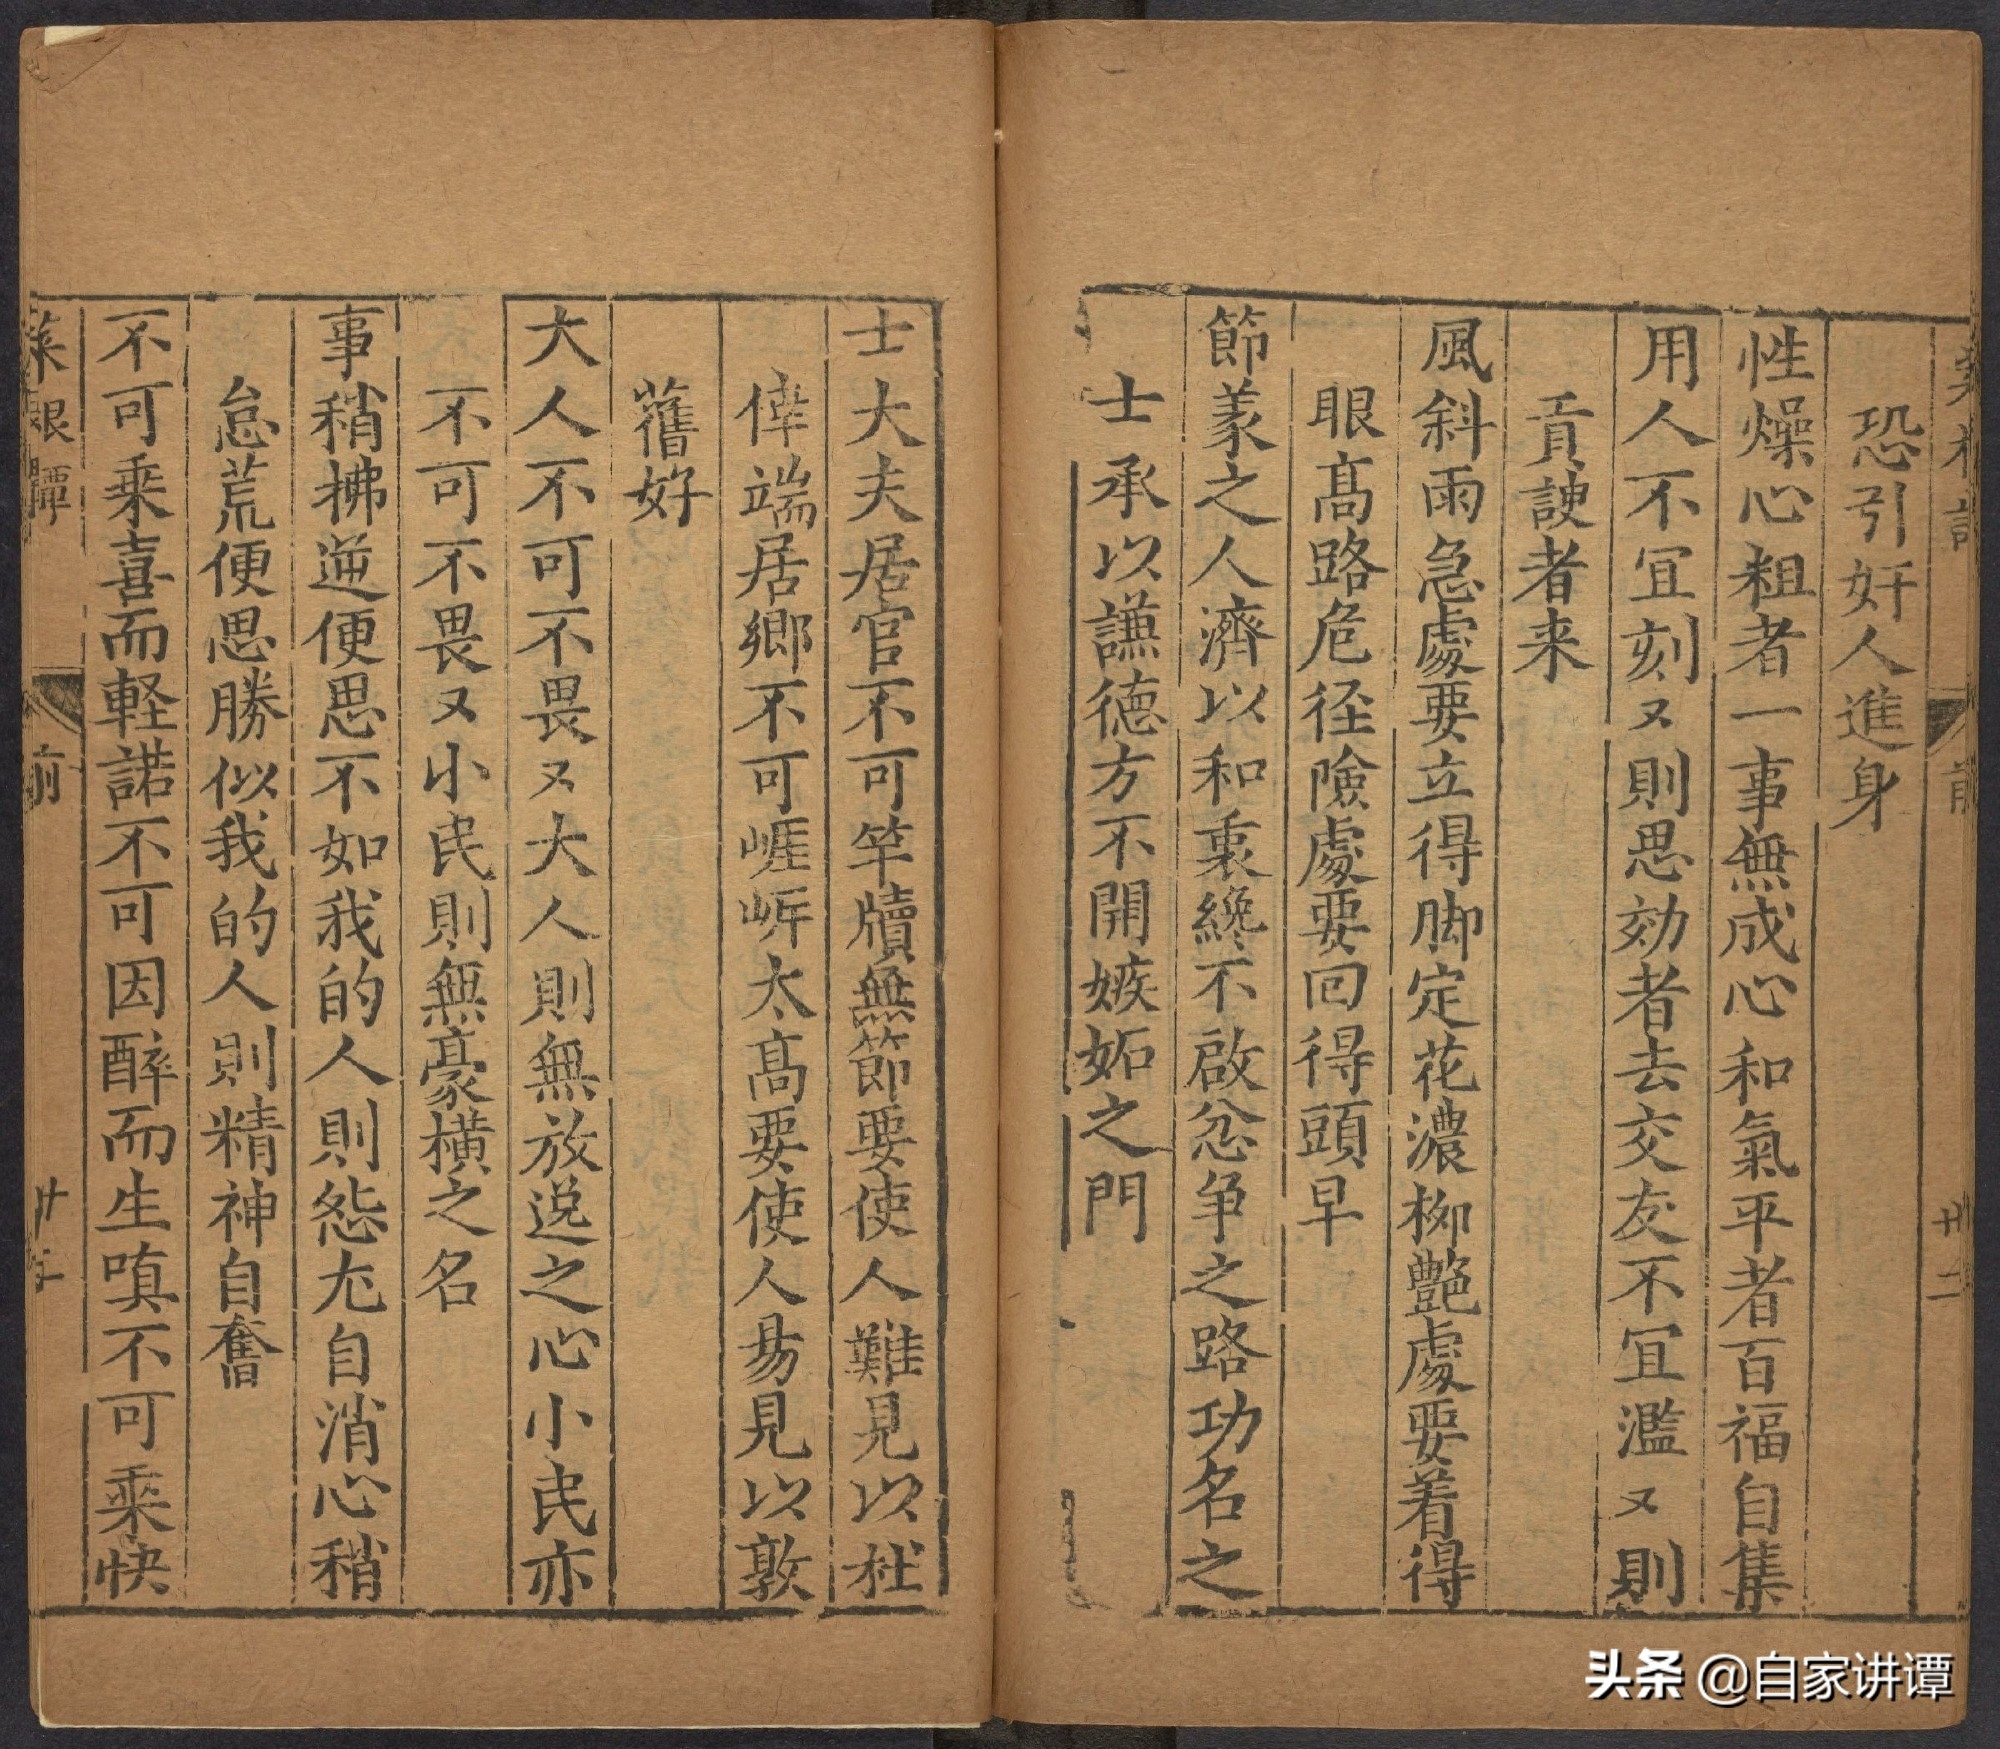 恐引奸人進身
性燥心粗者一事無成心和氣平者百福自集
用人不冝刻又則思効者去交友不冝濫又則
貢諛者来
風斜雨急處要立得脚定花濃柳艶處要着得
眼髙路危径險處要回得頭早
節義之人濟以和衷纔不啟忿争之路功名之
士承以謙德方不開嫉妬之門
前
廿二
士大夫居官不可竿牘無節要使人難見以杜
倖端居郷不可崕岸太髙要使人易見以敦
舊好
大人不可不畏又大人則無放逸之心小民亦
不可不畏又小民則無豪横之名
事稍拂逆便思不如我的人則怨尤自消心稍
怠荒便思勝似我的人則精神自奮
不可乗喜而軽諾不可因醉而生嗔不可乗快
菜根譚
前
头条 @自家讲谭